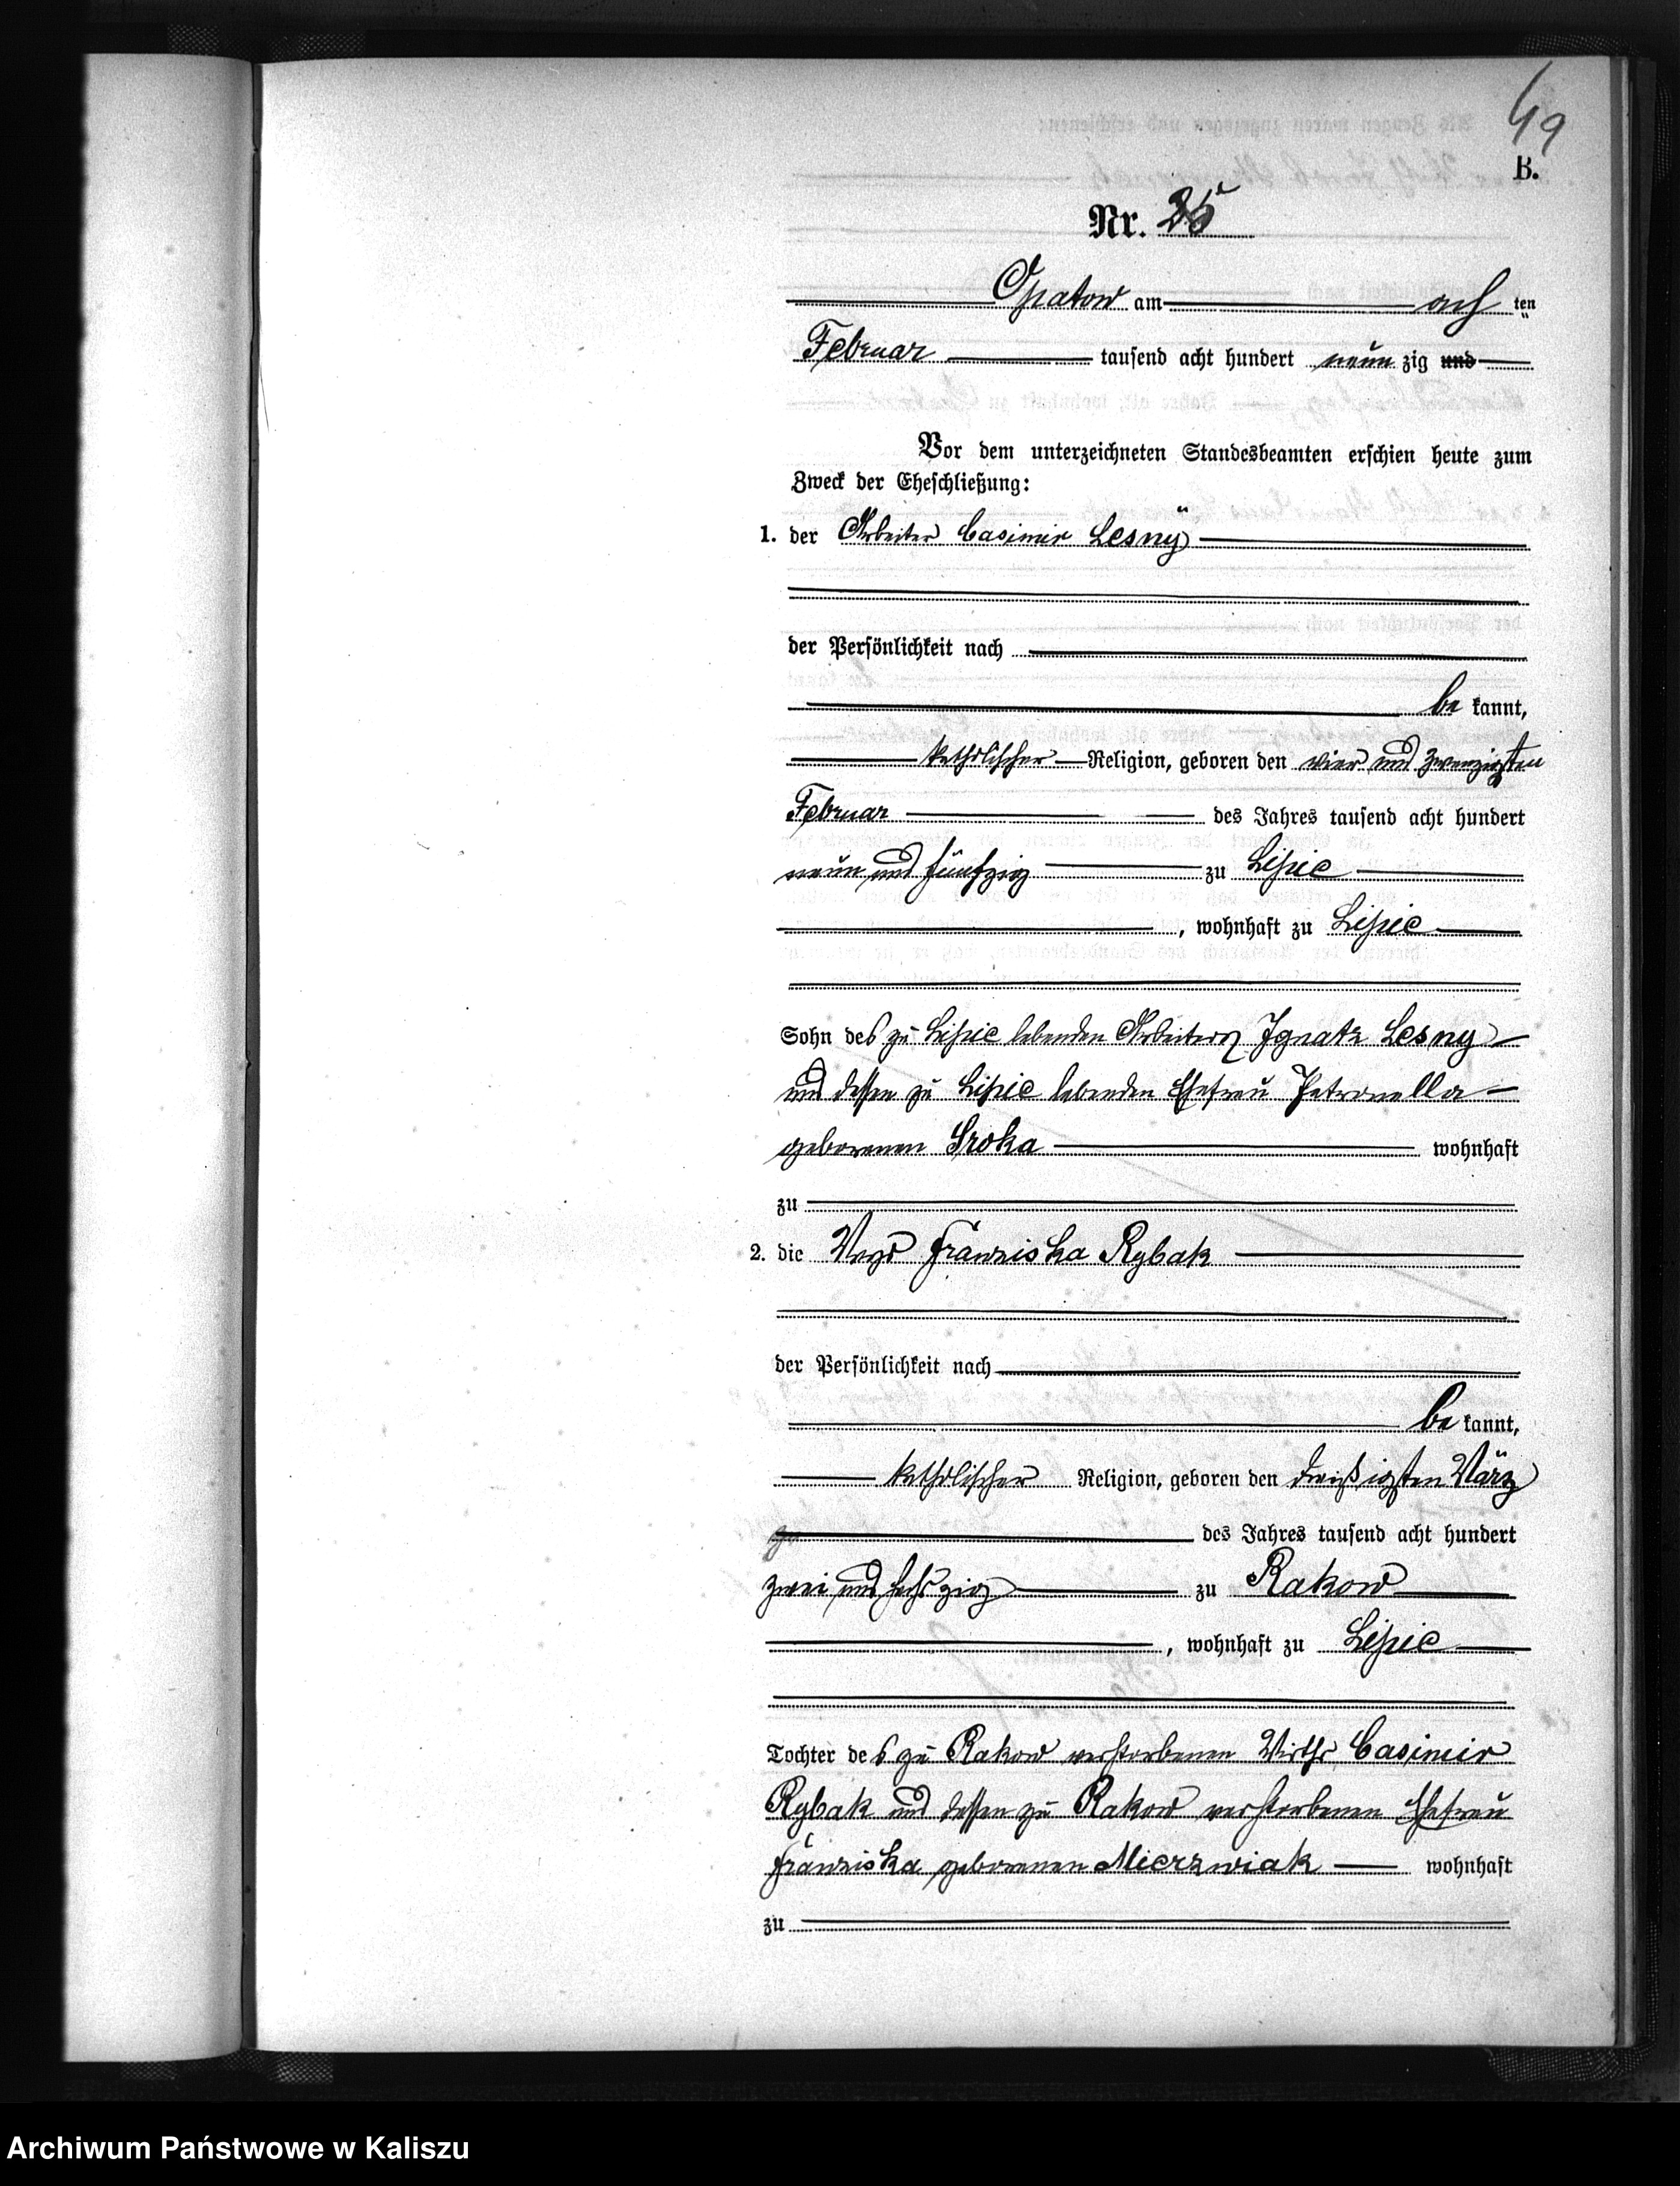 49
B.
Nr. 25
Opatow am ach ten
Februar tausend acht hundert neun zig und
Vor dem unterzeichneten Standesbeamten erschien heute zum
Zweck der Eheschließung:
1. der Arbeiter Casimir Lesny
der Persönlichkeit nach
be kannt,
katholischer Religion, geboren den vier und zwanzigsten
Februar des Jahres tausend acht hundert
neun und fünfzig zu Lipie
, wohnhaft zu Lipie
Sohn des zu Lipie lebenden Arbeiters Ignatz Lesny
und dessen zu Lipie lebenden Ehefrau Petronella
geborenen Sroka wohnhaft
zu
2. die Magd Franziska Rybak
der Persönlichkeit nach
be kannt,
katholischer Religion, geboren den dreißigsten März
des Jahres tausend acht hundert
zwei und sechszig zu Rakow
, wohnhaft zu Lipie
Tochter des zu Rakow verstorbenen Wirths Casimir
Rybak und dessen zu Rakow verstorbenen Ehefrau
Franziska geborenen Mierzwiak wohnhaft
zu
Archiwum Państwowe w Kaliszu